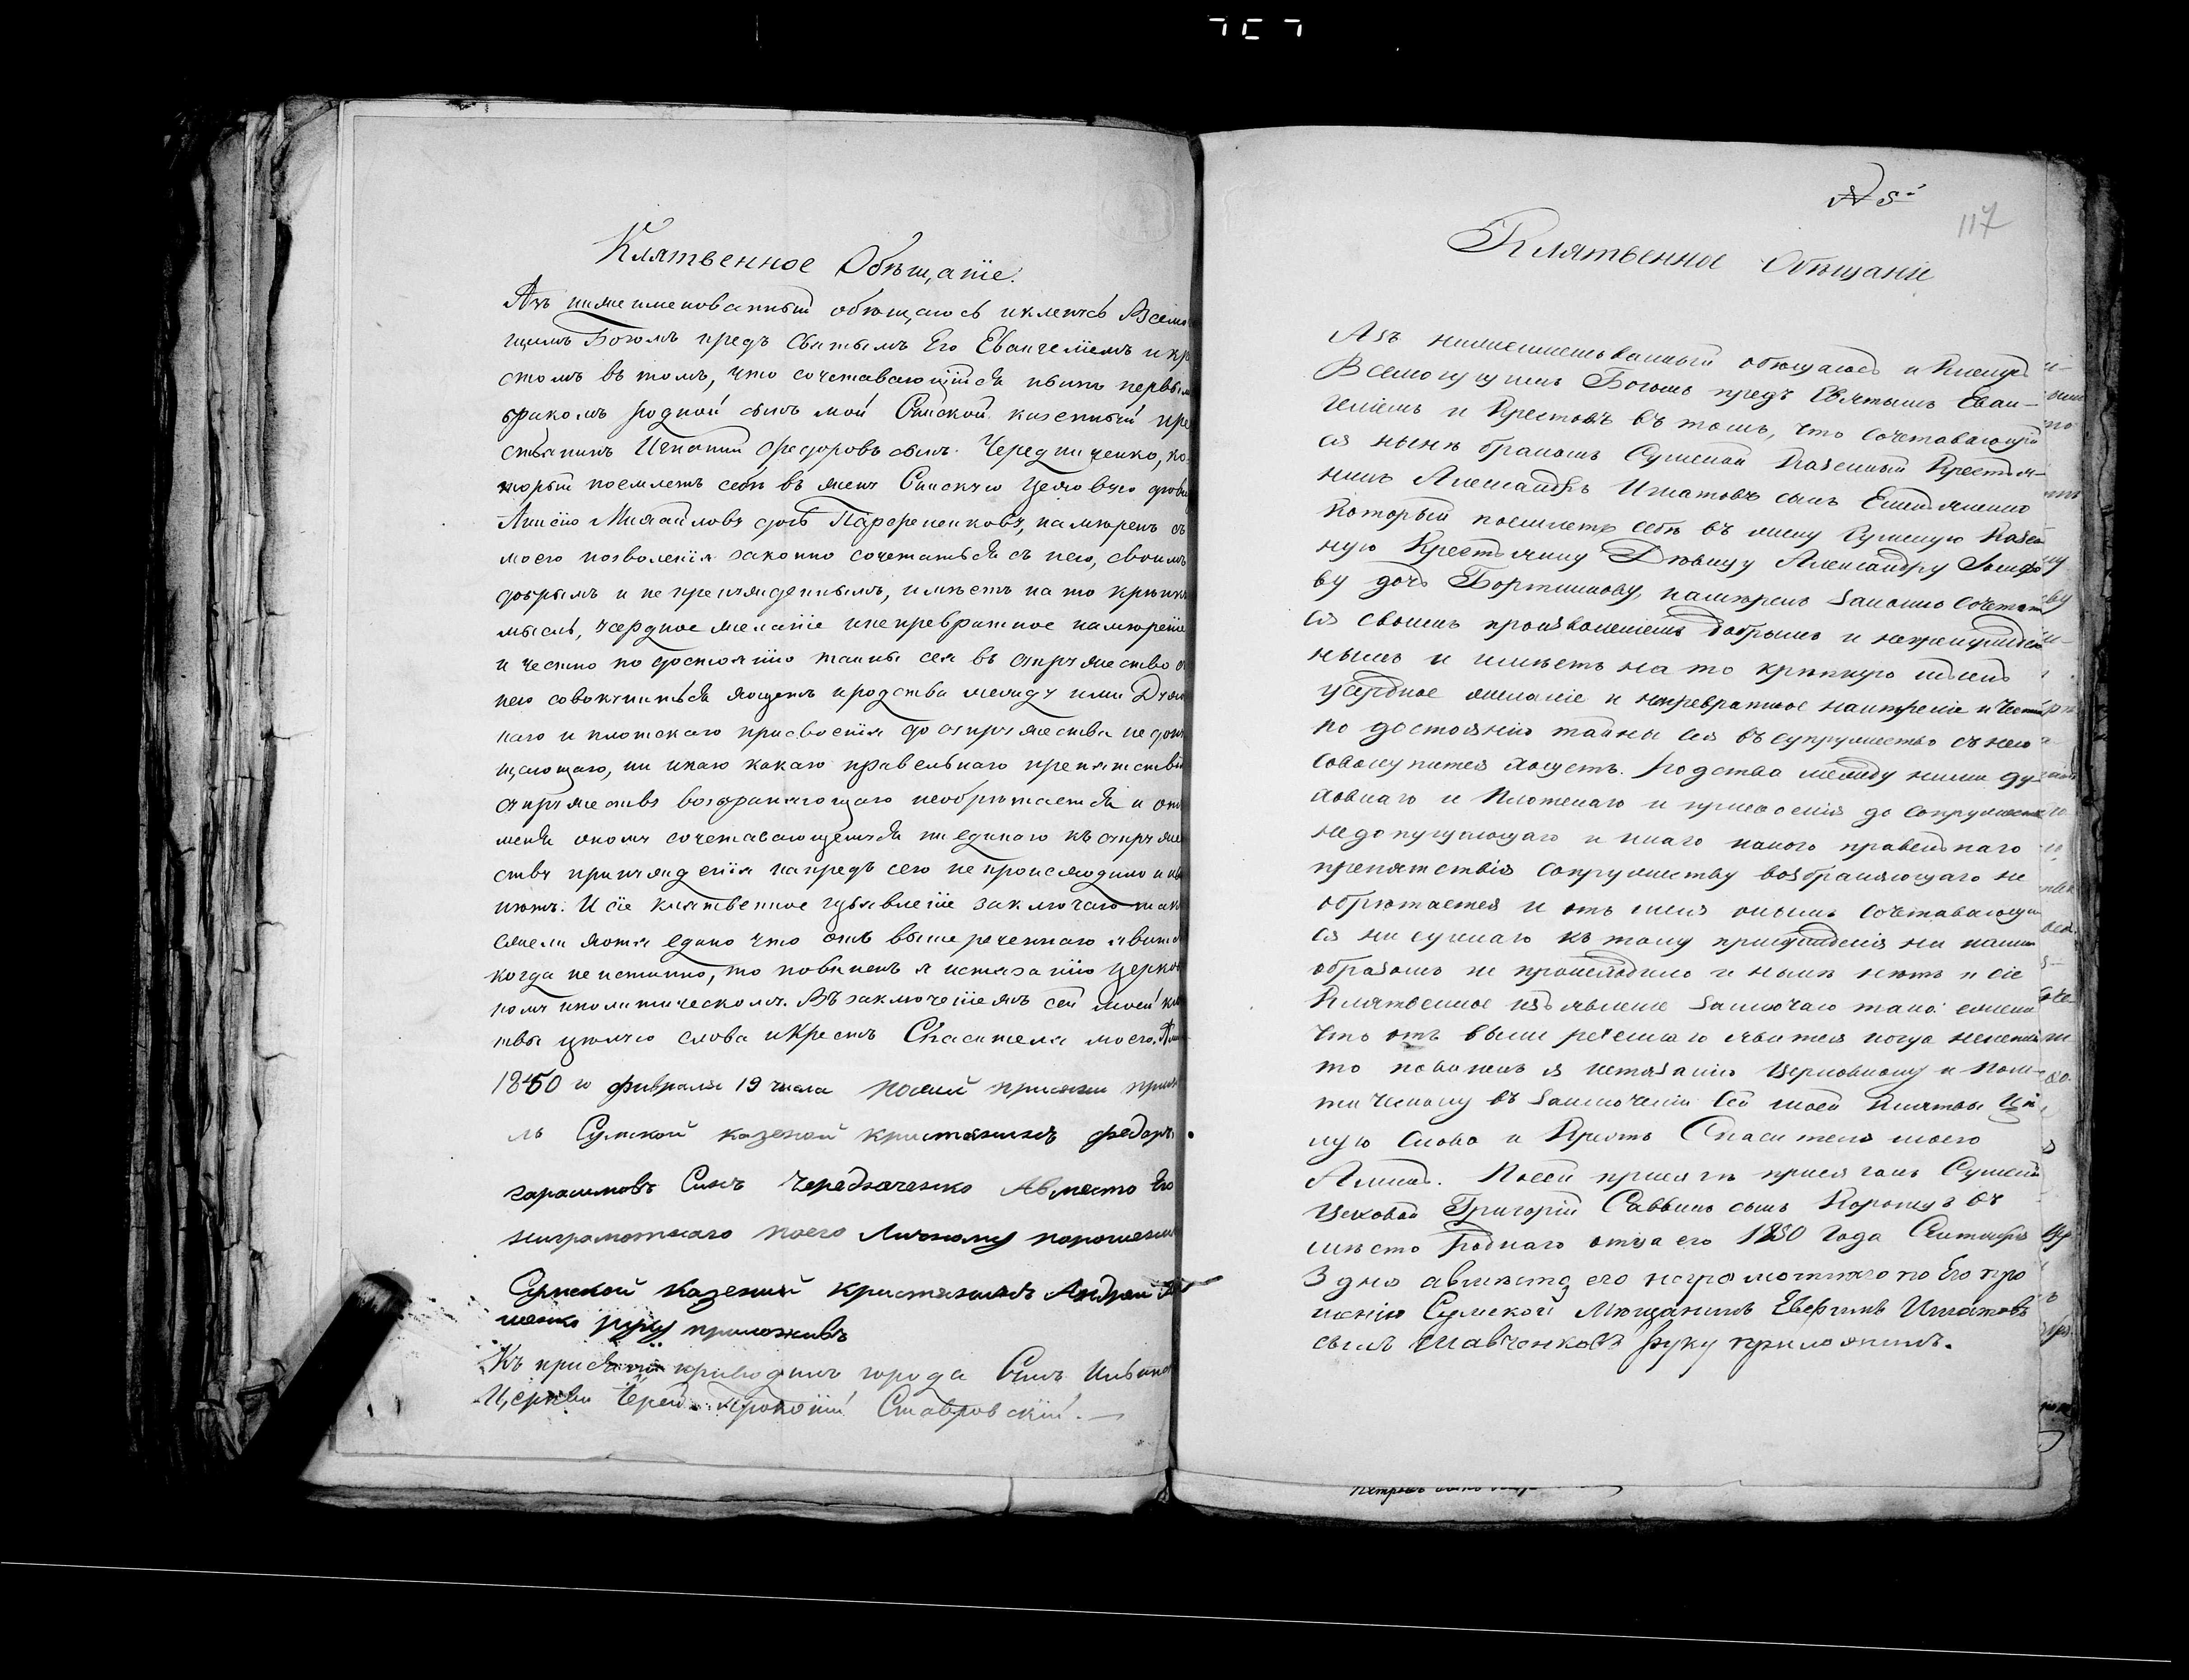 Клятвенное Обѣщаніе.
Азъ нижеименованный обѣщаюсь и кленусь Всемо
гщимъ Богомъ предъ Святымъ Его Евангеліемъ и кр
стомъ въ томъ, что сочетавающійся нынѣ первымъ
бракомъ родной сынъ мой Сумской казенный кре
стьянинъ Игнатій Федоровъ сынъ Чередниченко, ко
торый поемлетъ себѣ въ жену Сумскую цеховую дѣви
Михайлову дочь Парфененкову, намѣренъ съ
моего позволенія законно сочетаться съ нею, своимъ
добрымъ и непренужденнымъ, имѣетъ на то крѣпк
мысль, усердное желаніе и непревратное намѣреніе
и честно по достоянію тайны сея въ супружество съ
нею совокупиться хощетъ и родства между ими Духов
наго и плотскаго присвоенія до супружества недопу
щающаго, ни инаго какаго правельнаго препятствія
супружеству возбраняющаго необрѣтается и отъ
мене оному сочетавающемуся ни единаго къ супруже
ству принужденія напредъ сего не происходило и нынѣ
нѣтъ. И сіе клятвенное изъявленіе заключаю тако
ежели хотя едино что отъ вышереченнаго явится
когда не истинно, то повиненъ я истязанію церков
ному и политическому. Въ заключеніемъ сей моей кля
твы цѣлую слова и Крестъ Спасителя моего. Аминь
1850 го февраля 19 числа по сей присяги прися
лъ Сумской казеной кристянинъ федоръ
гарасимовъ Синъ Чередниченко Авместо Его
ниграмотнаго поего Личному порошению
Сумской казеный кристянинъ Андрей
ненко руку приложивъ
Къ присягѣ приводилъ города Сумъ Ильинс
Церкви Іерей Прокопій Ставровскій.
№ 5
117
Клятвенное Обѣщаніе
Азъ нижеименованный обѣщаюсь и кленусь
Всемогущимъ Богомъ предъ Святымъ Еван-
геліемъ и Крестомъ въ томъ, что сочетавающій
ся нынѣ бракомъ Сумской Казенный Крестья-
нинъ Александръ Игнатовъ сынъ Емельяненко
который поемлетъ себѣ въ жену Сумскую Казен
ную Крестьянку Дѣвицу Александру
ву дочь Бортникову, намѣренъ законно сочетать
ся своимъ произволеніемъ добрымъ и непринужден
нымъ и имѣетъ на то крѣпкую мысль
усердное желаніе и непревратное намѣреніе и честно
по достоянію тайны сея въ супружество съ нею
совокупится хощетъ. родства между ними ду-
ховнаго и плотскаго и присвоенія до сопружества
недопущающаго и инаго какого правельнаго
препятствія сопружеству возбраняющаго не
обрѣтается и отъ меня онымъ сочетавающи
ся ни еуинаго къ тому принужденія ни какимъ
образомъ не происходило и нынѣ нѣтъ и сіе
Клятвенное изъявленіе заключаю тако: ежели
что отъ выше реченнаго явится когда неистин
то повиненъ я истязанію Церковному и поли-
тическому въ заключеніи сей моей клятвы цѣ
лую слова и Крестъ Спасителя моего
Аминь. По сей присягѣ присягалъ Сумской
Цеховой Григорій Саввинъ сынъ въ
мѣсто роднаго отца его 1850 года Сентября
3 дня авмѣсто его неграмотнаго по Его про
шенію Сумской Мѣщанинъ Игнатовъ
сынъ Шавченковъ руку приложилъ.